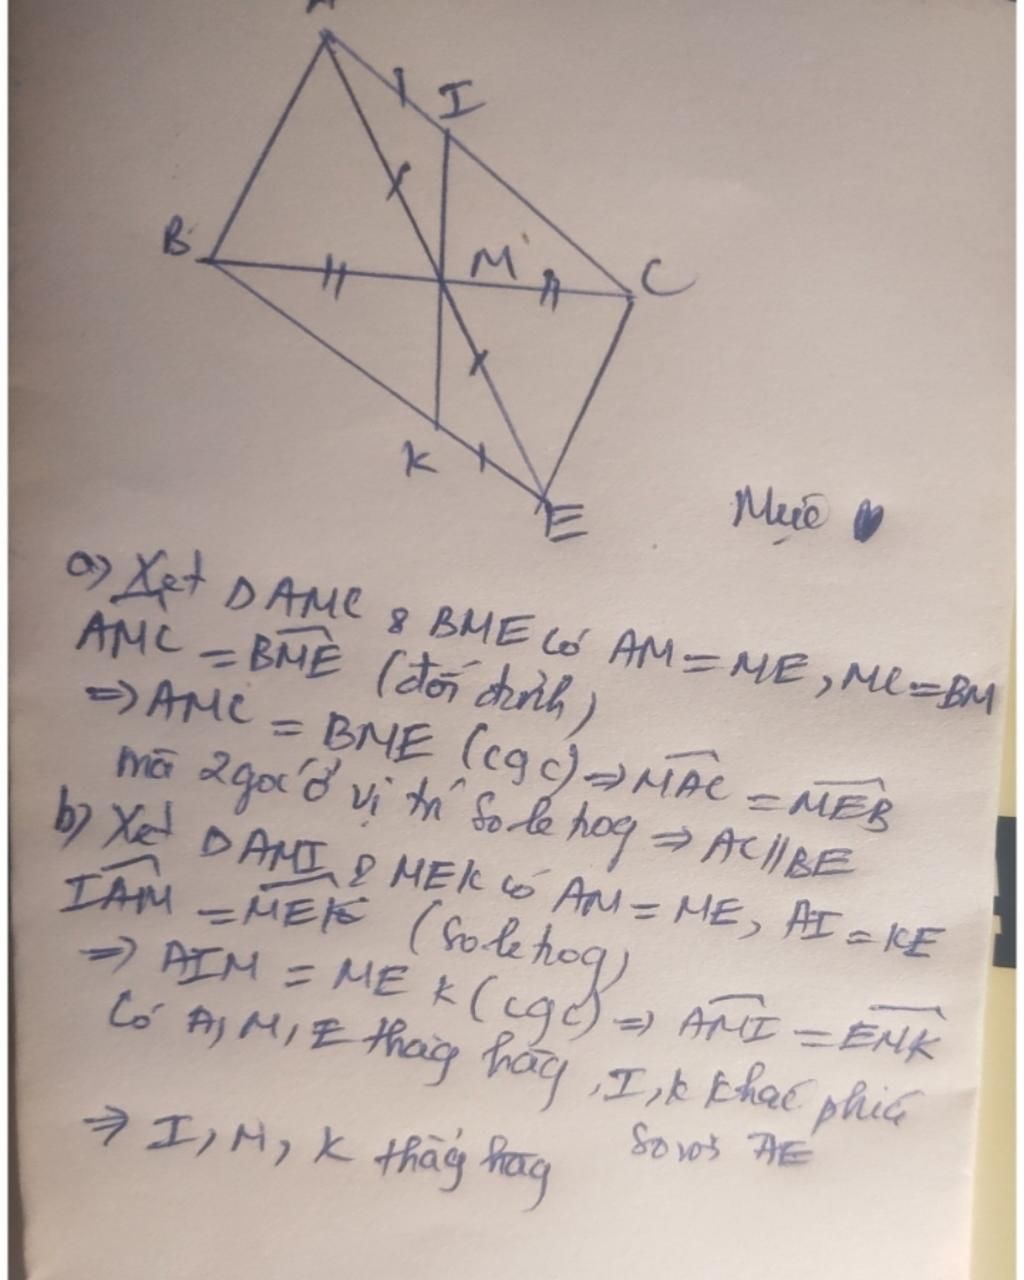 A
I
B
M
C
K
E
a) Xét Δ AMC & BME có AM = ME, MC = BM
AMC = BME (đối đỉnh)
=> AMC = BME (cgc) => MAC = MEB
mà 2 góc ở vị trí so le trog => AC // BE
b) Xét Δ AMI & MEK có AM = ME, AI = KE
IAM = MEK (so le trog)
=> AIM = MEK (cgc) => AMI = EMK
Có A, M, E thẳg hàg, I, K khác phía
so với AE
=> I, M, K thẳg hàg